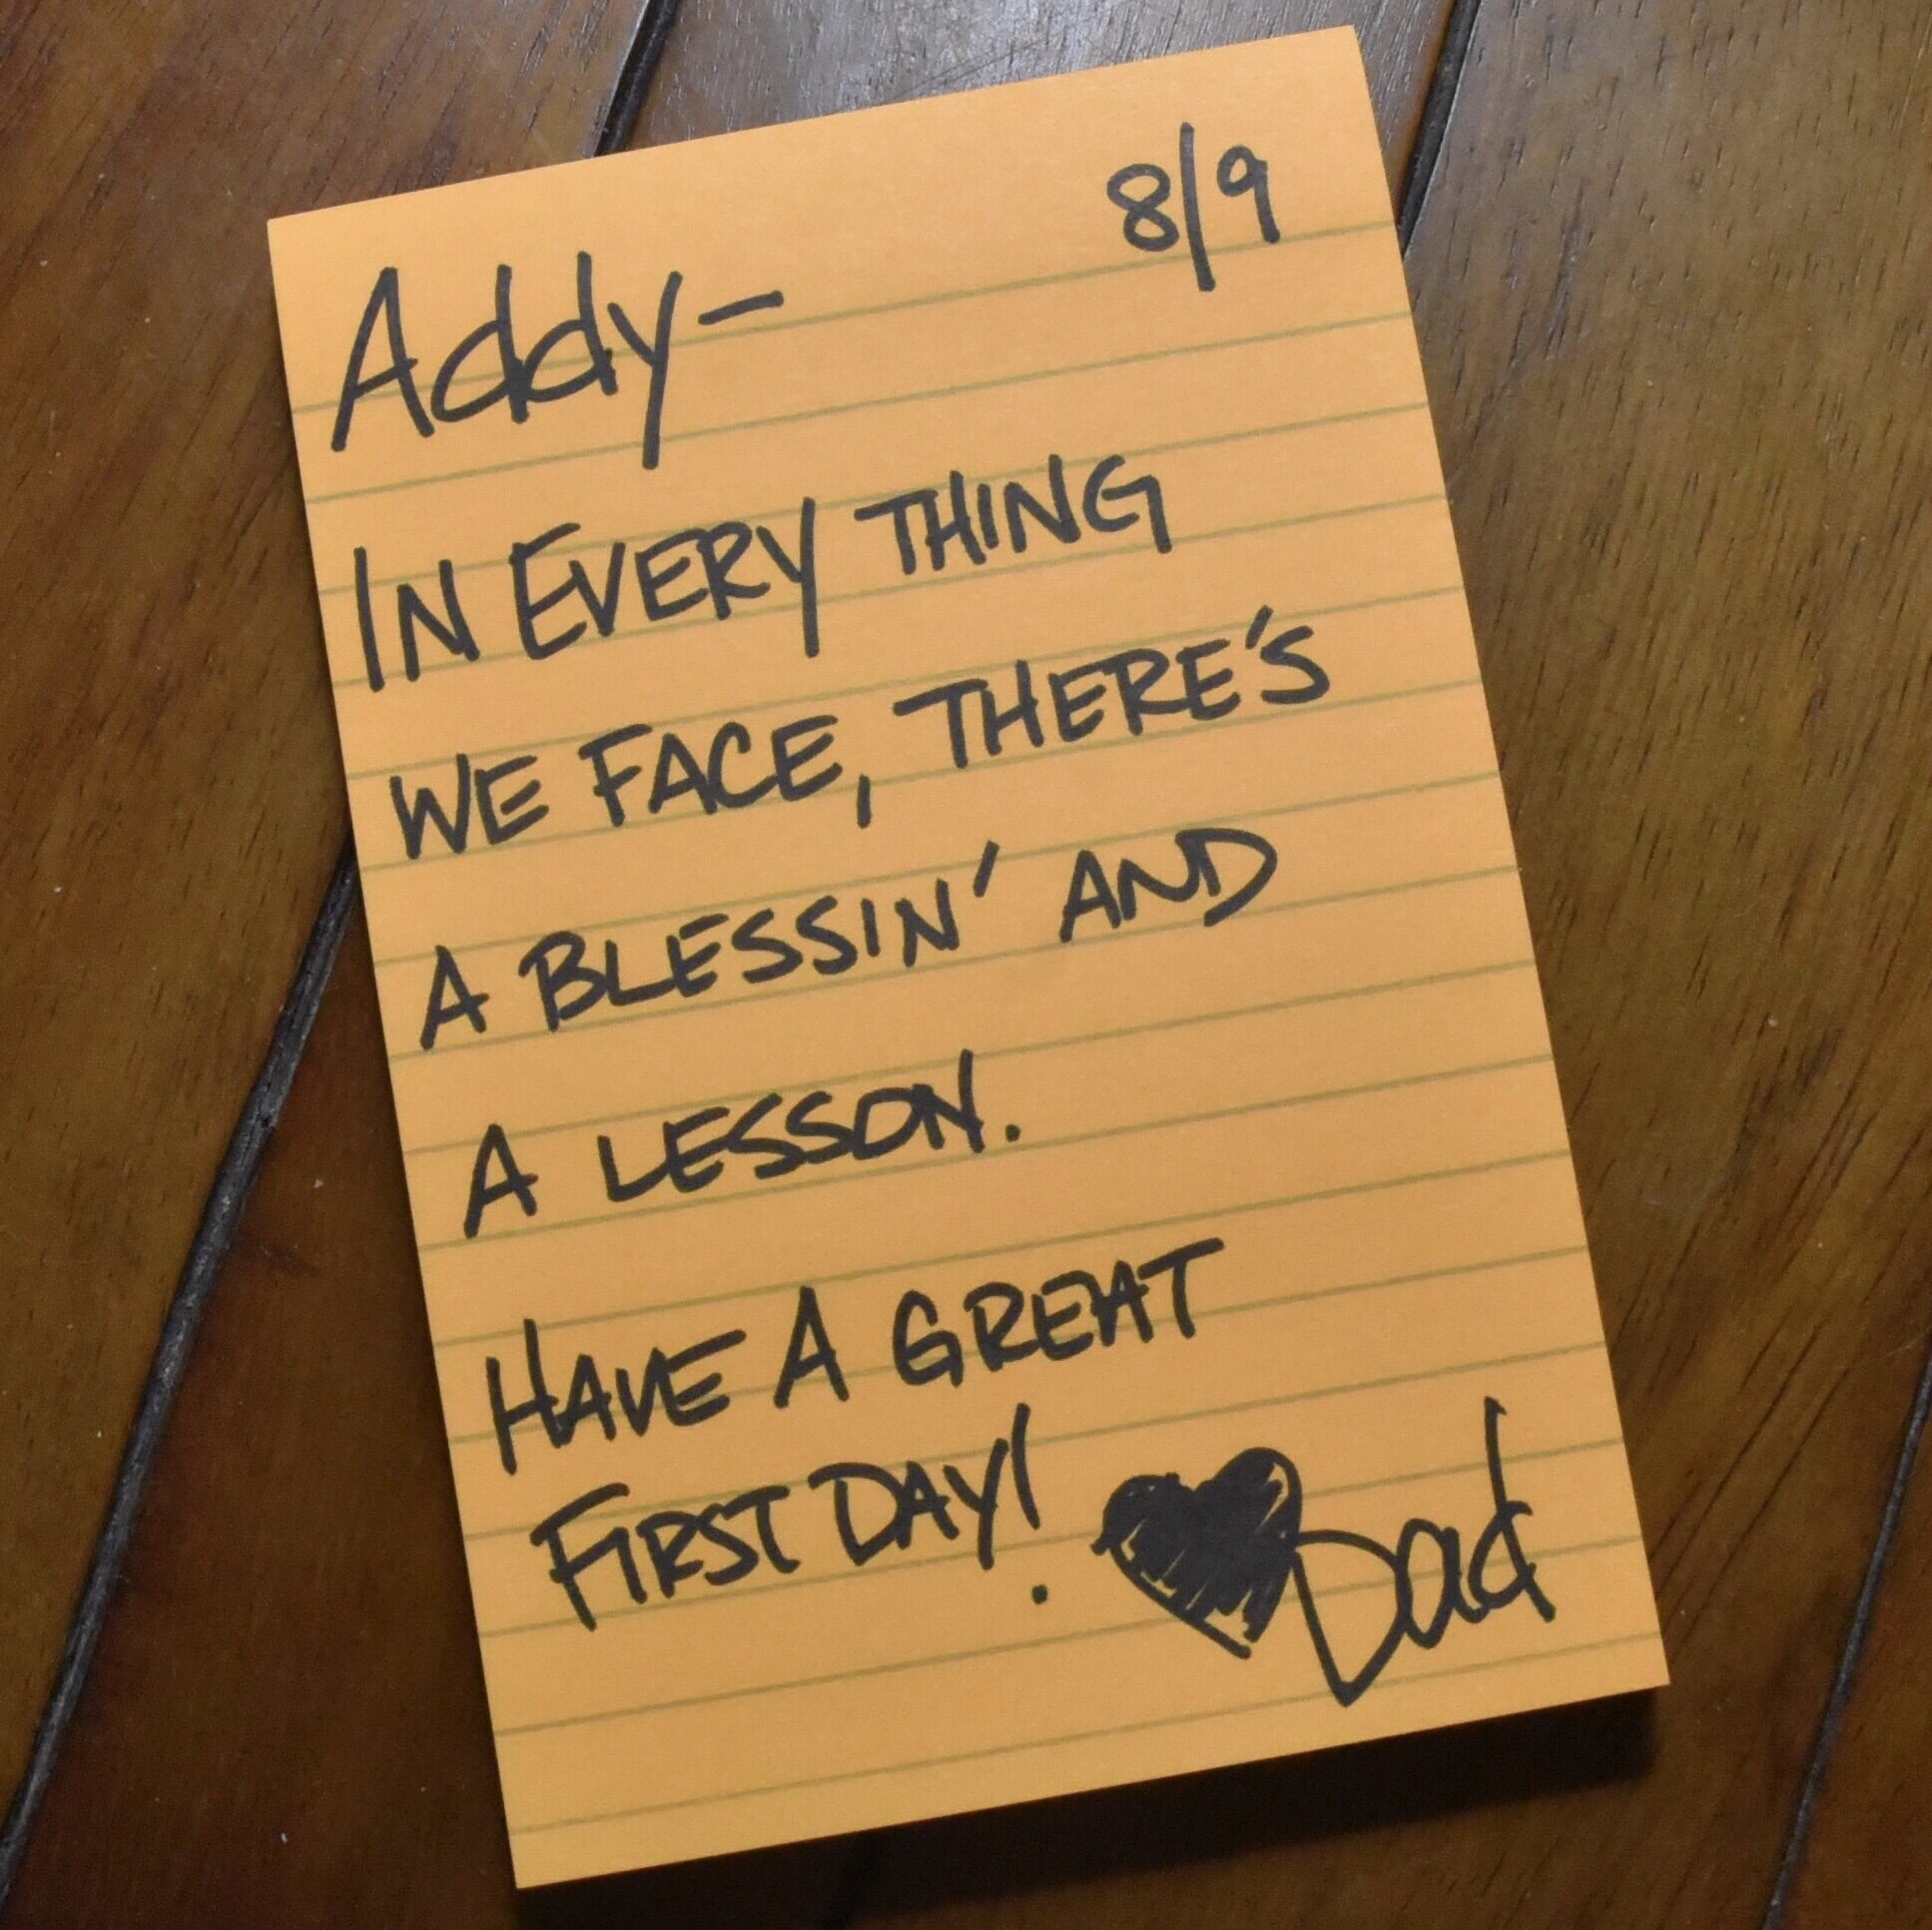 8/9
Addy-
IN EVERY THING
WE FACE, THERE'S
A BLESSIN' AND
A LESSON.
HAVE A GREAT
FIRST DAY!
Dad